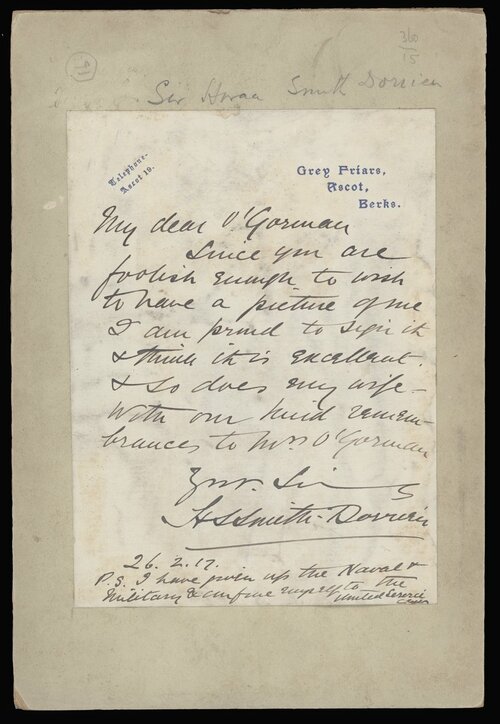 360
15
91
Sir Horace Smith Dorrien
Telephone.
Ascot 19.
Grey Friars,
Ascot,
Berks.
My dear O'Gorman
Since you are
foolish enough to wish
to have a picture of me
I am proud to sign it
& think it is excellent.
& so does my wife -
With our kind remem-
brances to Mrs O'Gorman
Yrs. Sin
HLSmith-Dorrien
26.2.17.
P.S. I have given up the Naval &
Military & confine myself to the
United Service